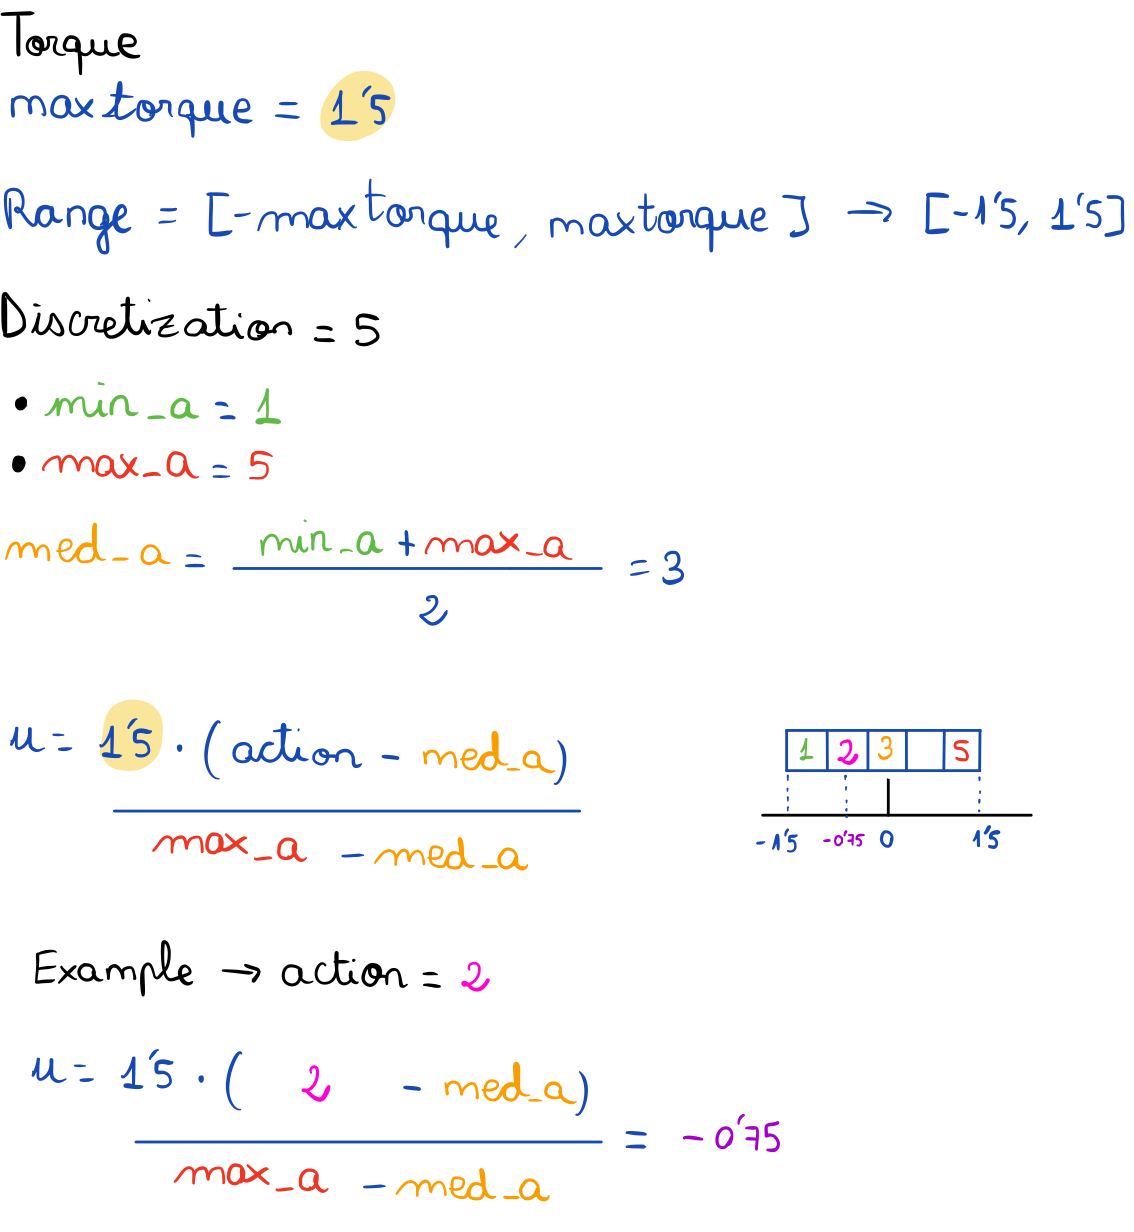 Torque
maxtorque = 1'5
Range = [-maxtorque, maxtorque] → [-1'5, 1'5]
Discretization = 5
• min_a = 1
• max_a = 5
med_a = min_a + max_a / 2 = 3
u = 1'5 · (action - med_a) / max_a - med_a
1 2 3 5
-1'5 -0'75 0 1'5
Example → action = 2
u = 1'5 · ( 2 - med_a) / max_a - med_a = -0'75